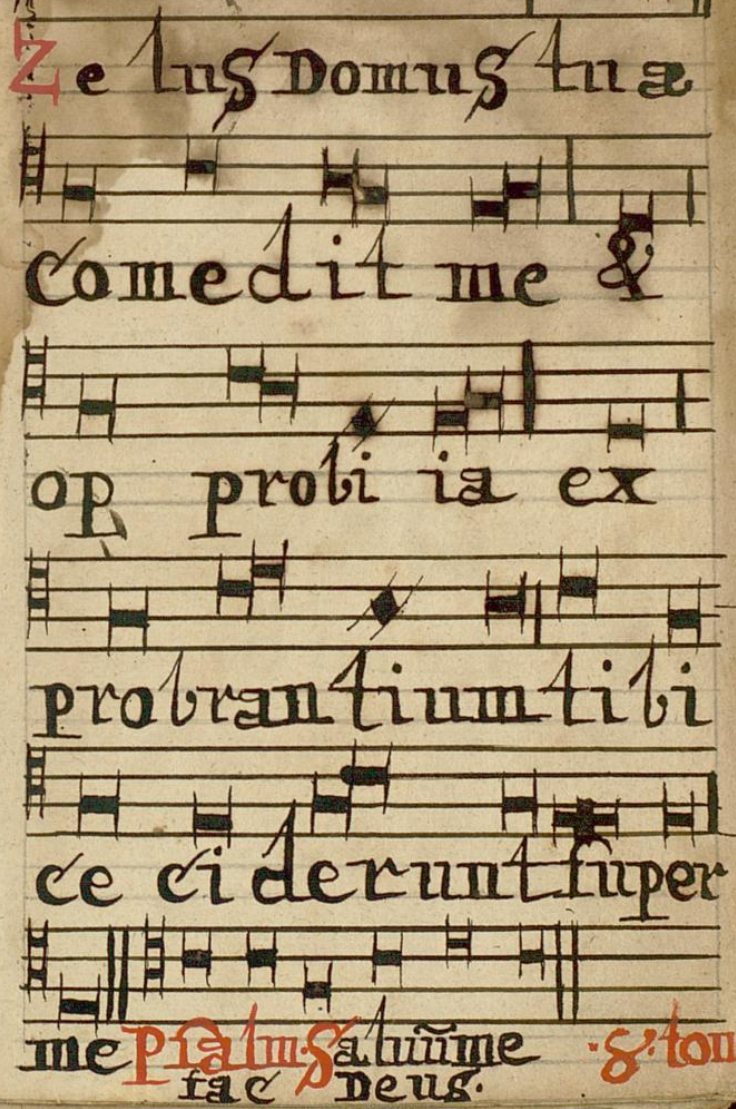 Zelus Domus tuæ
comedit me &
op probri ia ex
probrantium tibi
ce ciderunt super
me Psalm. Saluũ me .8. ton
fac Deus.